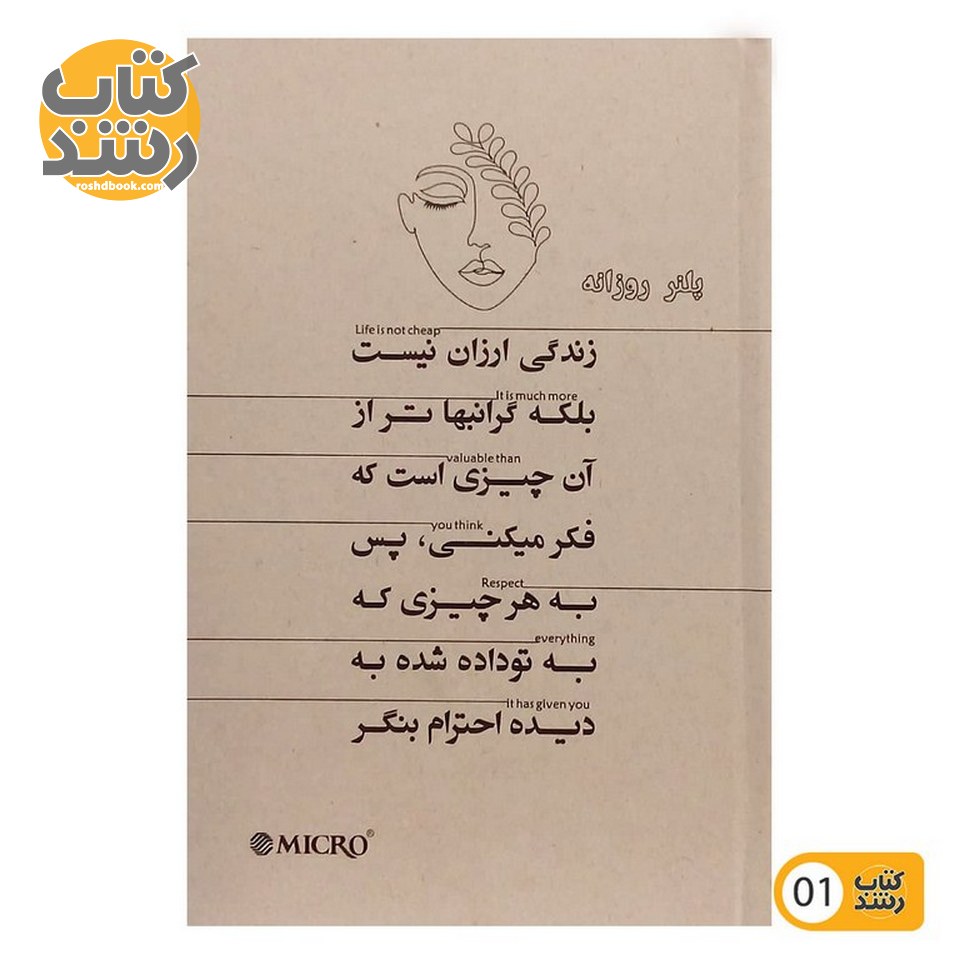 کتاب
رشد
roshdbook.com
پلنر روزانه
Life is not cheap
زندگی ارزان نیست
It is much more
بلکه گرانبها تر از
valuable than
آن چیزی است که
you think
فکر میکنی، پس
Respect
به هر چیزی که
everything
به توداده شده به
it has given you
دیده احترام بنگر
MICRO®
01
کتاب
رشد